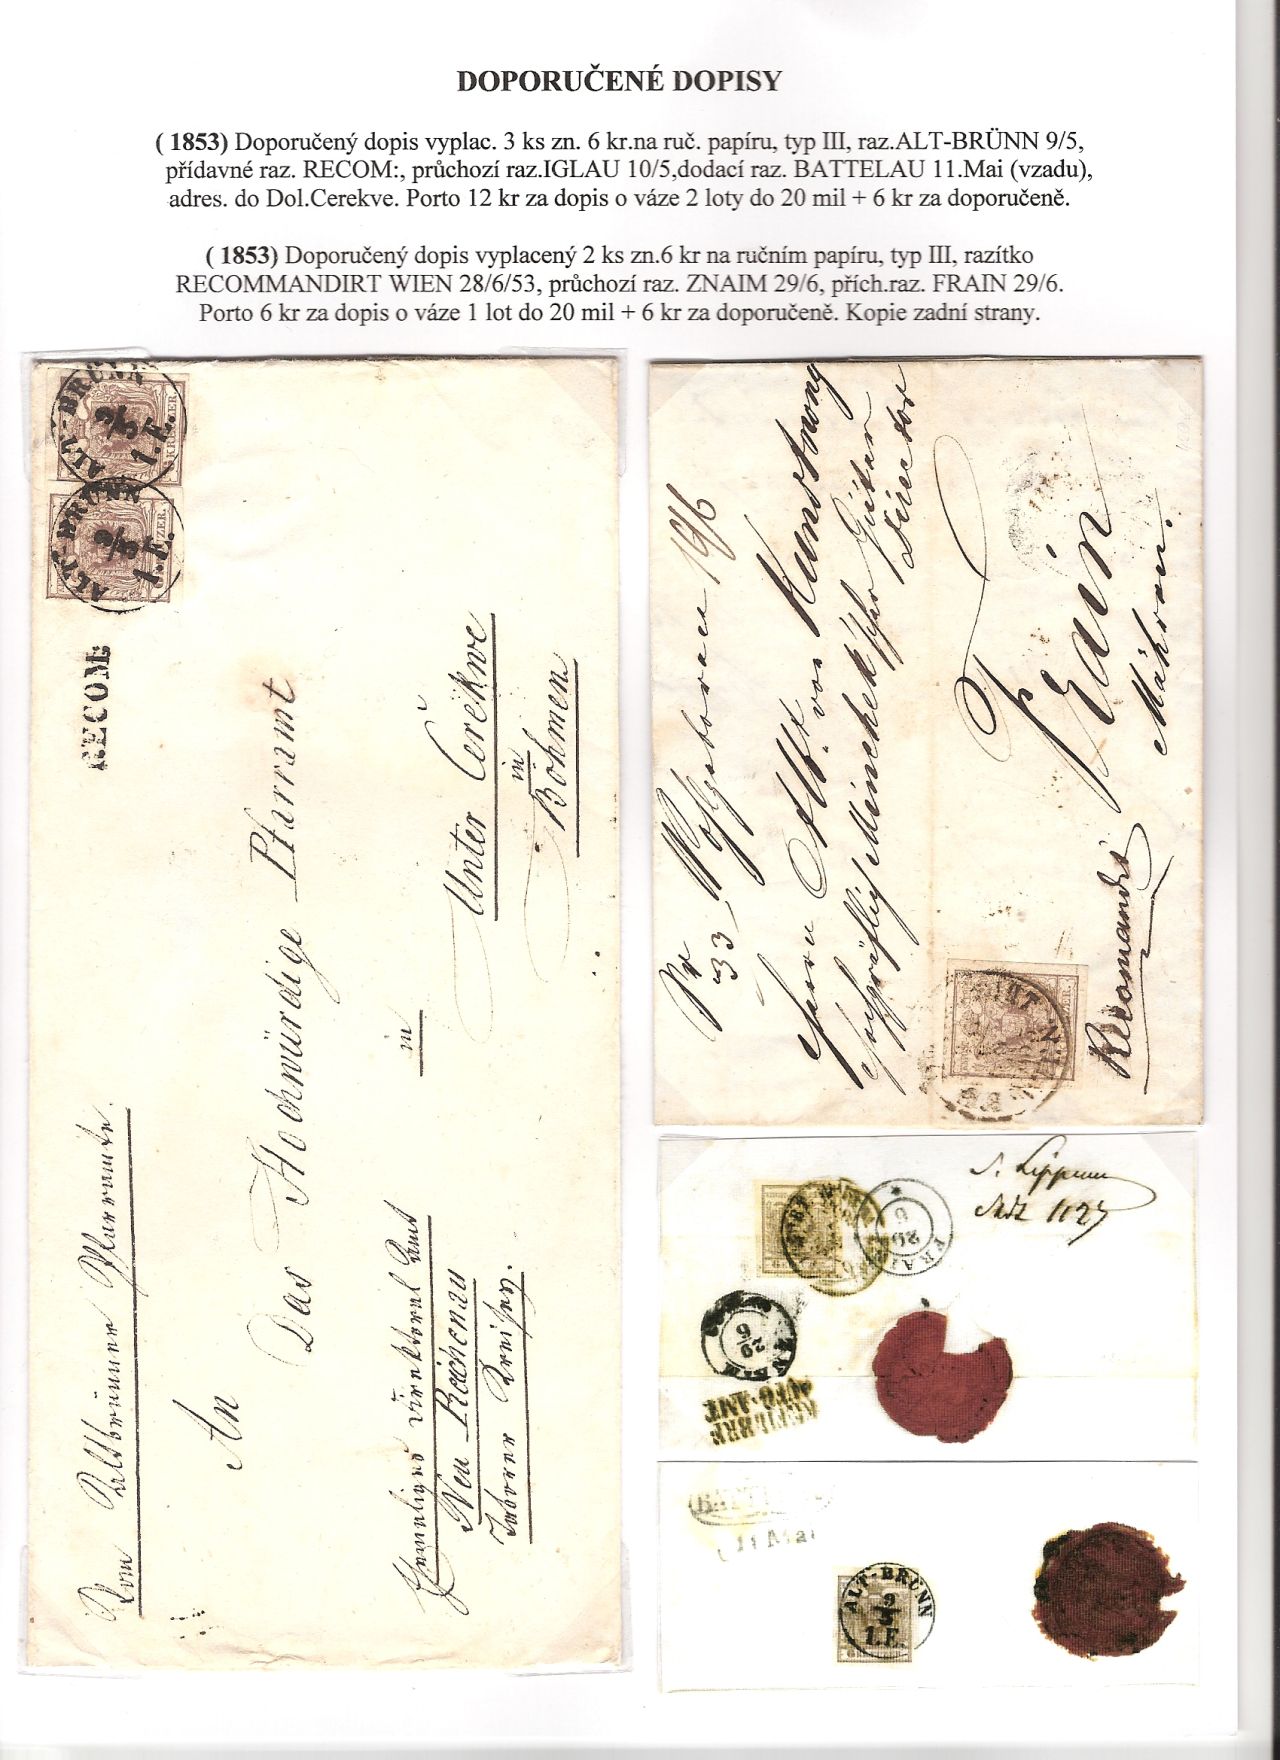 DOPORUČENÉ DOPISY
( 1853) Doporučený dopis vyplac. 3 ks zn. 6 kr.na ruč. papíru, typ III, raz.ALT-BRÜNN 9/5,
přídavné raz. RECOM:, průchozí raz.IGLAU 10/5,dodací raz. BATTELAU 11.Mai (vzadu),
adres. do Dol.Cerekve. Porto 12 kr za dopis o váze 2 loty do 20 mil + 6 kr za doporučeně.
( 1853) Doporučený dopis vyplacený 2 ks zn.6 kr na ručním papíru, typ III, razítko
RECOMMANDIRT WIEN 28/6/53, průchozí raz. ZNAIM 29/6, přích.raz. FRAIN 29/6.
Porto 6 kr za dopis o váze 1 lot do 20 mil + 6 kr za doporučeně. Kopie zadní strany.
ALT-BRÜNN
9/5
1.E.
ALT-BRÜNN
9/5
1.E.
RECOM:
Vom Altbrünner Pfarramte.
An
Das Hochwürdige Pfarramt
in
Unter Cerekwe
in
Böhmen
Direktorat Amt
Neu Reichenau
Nr
33
von
Frain
Mähren.
Recomandirt
FRAIN
29
6
ZNAIM
29
6
1127
11 Mai
ALT-BRÜNN
9/5
1.E.